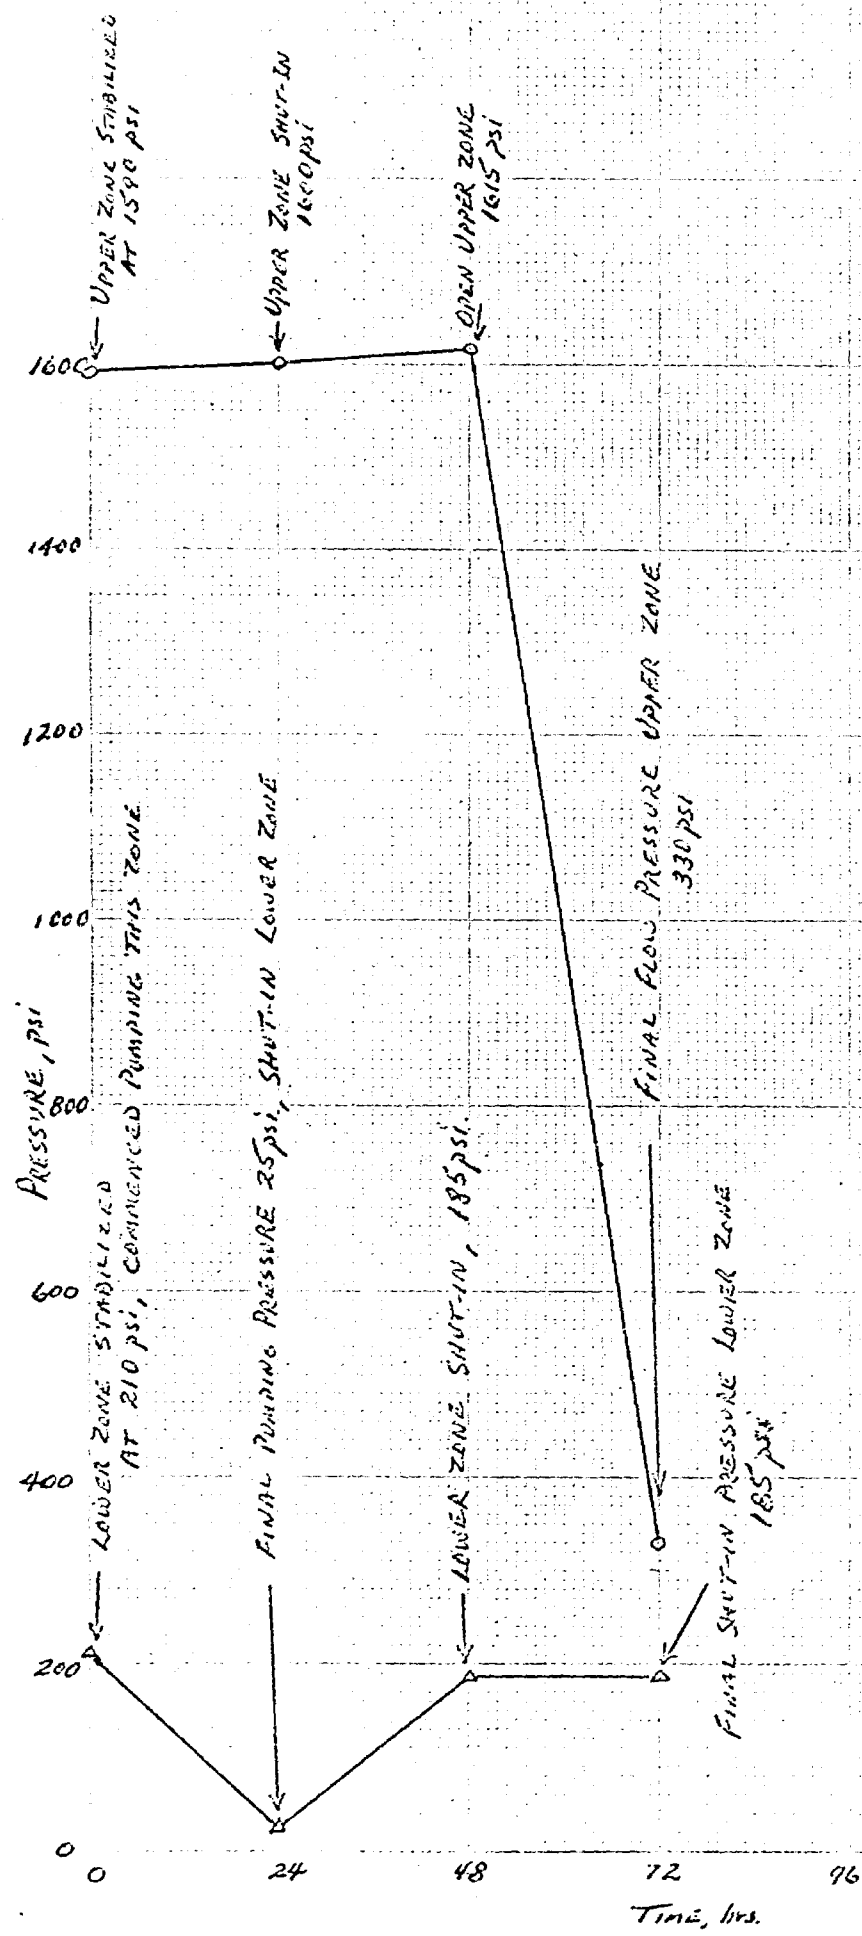 UPPER ZONE STABILIZED
AT 1590 psi
UPPER ZONE SHUT-IN
1600 psi
OPEN UPPER ZONE
1615 psi
1600
1400
1200
1000
800
600
400
200
0
PRESSURE, psi
LOWER ZONE STABILIZED
AT 210 psi, COMMENCED PUMPING THIS ZONE
FINAL PUMPING PRESSURE 25 psi, SHUT-IN LOWER ZONE
LOWER ZONE SHUT-IN, 185 psi.
FINAL FLOW PRESSURE UPPER ZONE
330 psi
FINAL SHUT-IN PRESSURE LOWER ZONE
185 psi
0 24 48 72 96
TIME, hrs.